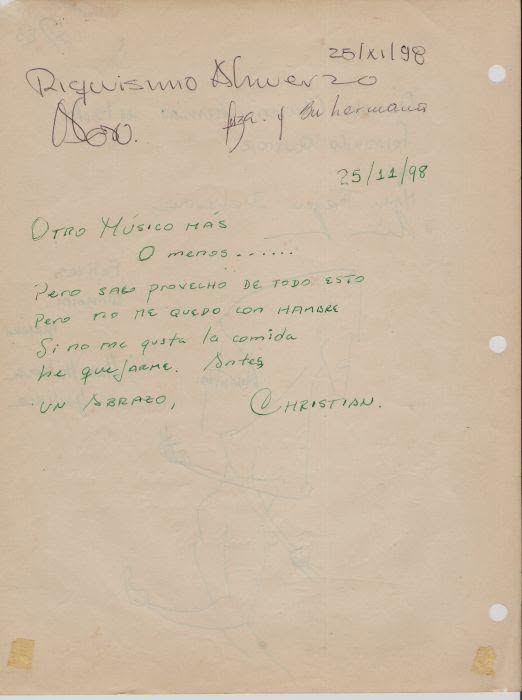 25/XI/98
Riquisimo Almuerzo
y su hermana
25/11/98
OTRO MÚSICO MÁS
O menos.......
Pero SACO PROVECHO DE TODO ESTO
Pero NO ME QUEDO CON HAMBRE
Si no me gusta la comida
he quejarme. Antes
UN ABRAZO, CHRISTIAN.